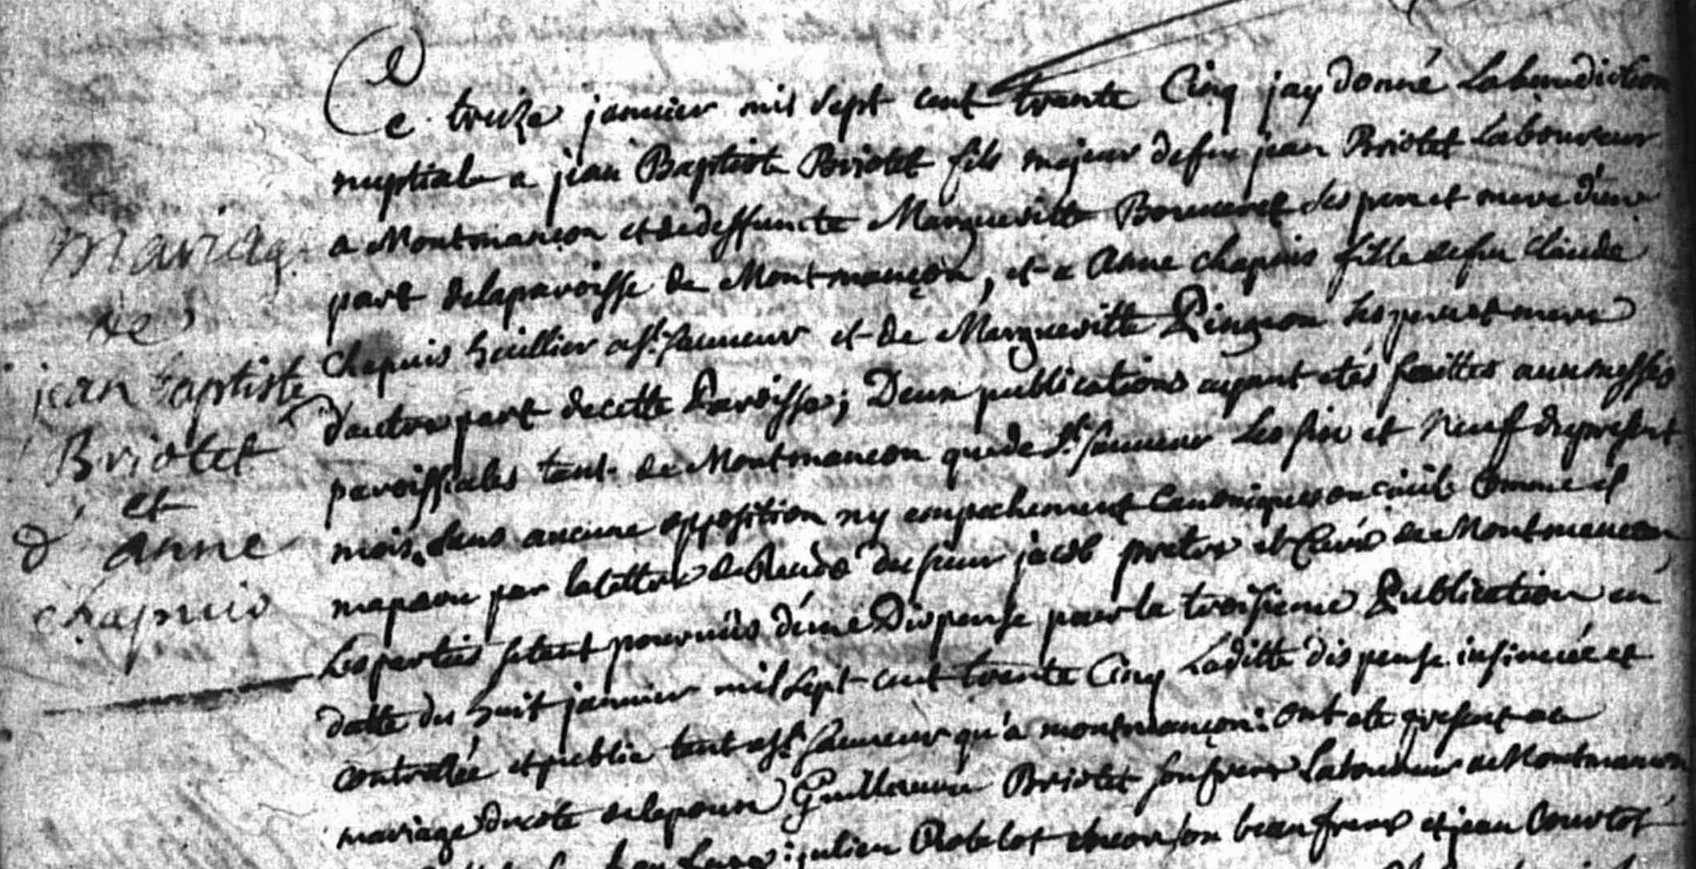 Mariage
de
jean baptiste
Briotet
et
d'anne
chapuis
Ce treize janvier mil sept cent trente Cinq jay donné La benediction
nuptiale a jean Baptiste Briotet fils majeur defeu jean Briotet Laboureur
a Montmancon et dedeffuncte Margueritte ses pere et mere d'une
part delaparoisse de Montmançon, et a Anne chapuis fille defeu claude
Chapuis huillier a St. sauveur et de Margueritte Pingeon ses pere et mere
d'autre part decette Paroisse; Deux publications ayant etés faittes aux messes
paroissiales tant de Montmancon quede St. sauveur Les six et Neuf dupresent
mois, sans aucune opposition ny empechement canoniques ou civile Comme il
maparu par lalettre de du sieur jacob pretre et Curé de Montmancon
Les parties setant pourvües d'une Dispense pour la troisieme Publication en
datte du huit janvier mil sept cent trente Cinq Laditte dispense insinuée et
controllée et publie tant a St. sauveur qu'a montmançon: ont ete present au
mariage ducoté delepoux Guillaume Briotet son frere Laboureur de Montmancon
julien Robelot son beaufrere et jean Courtot